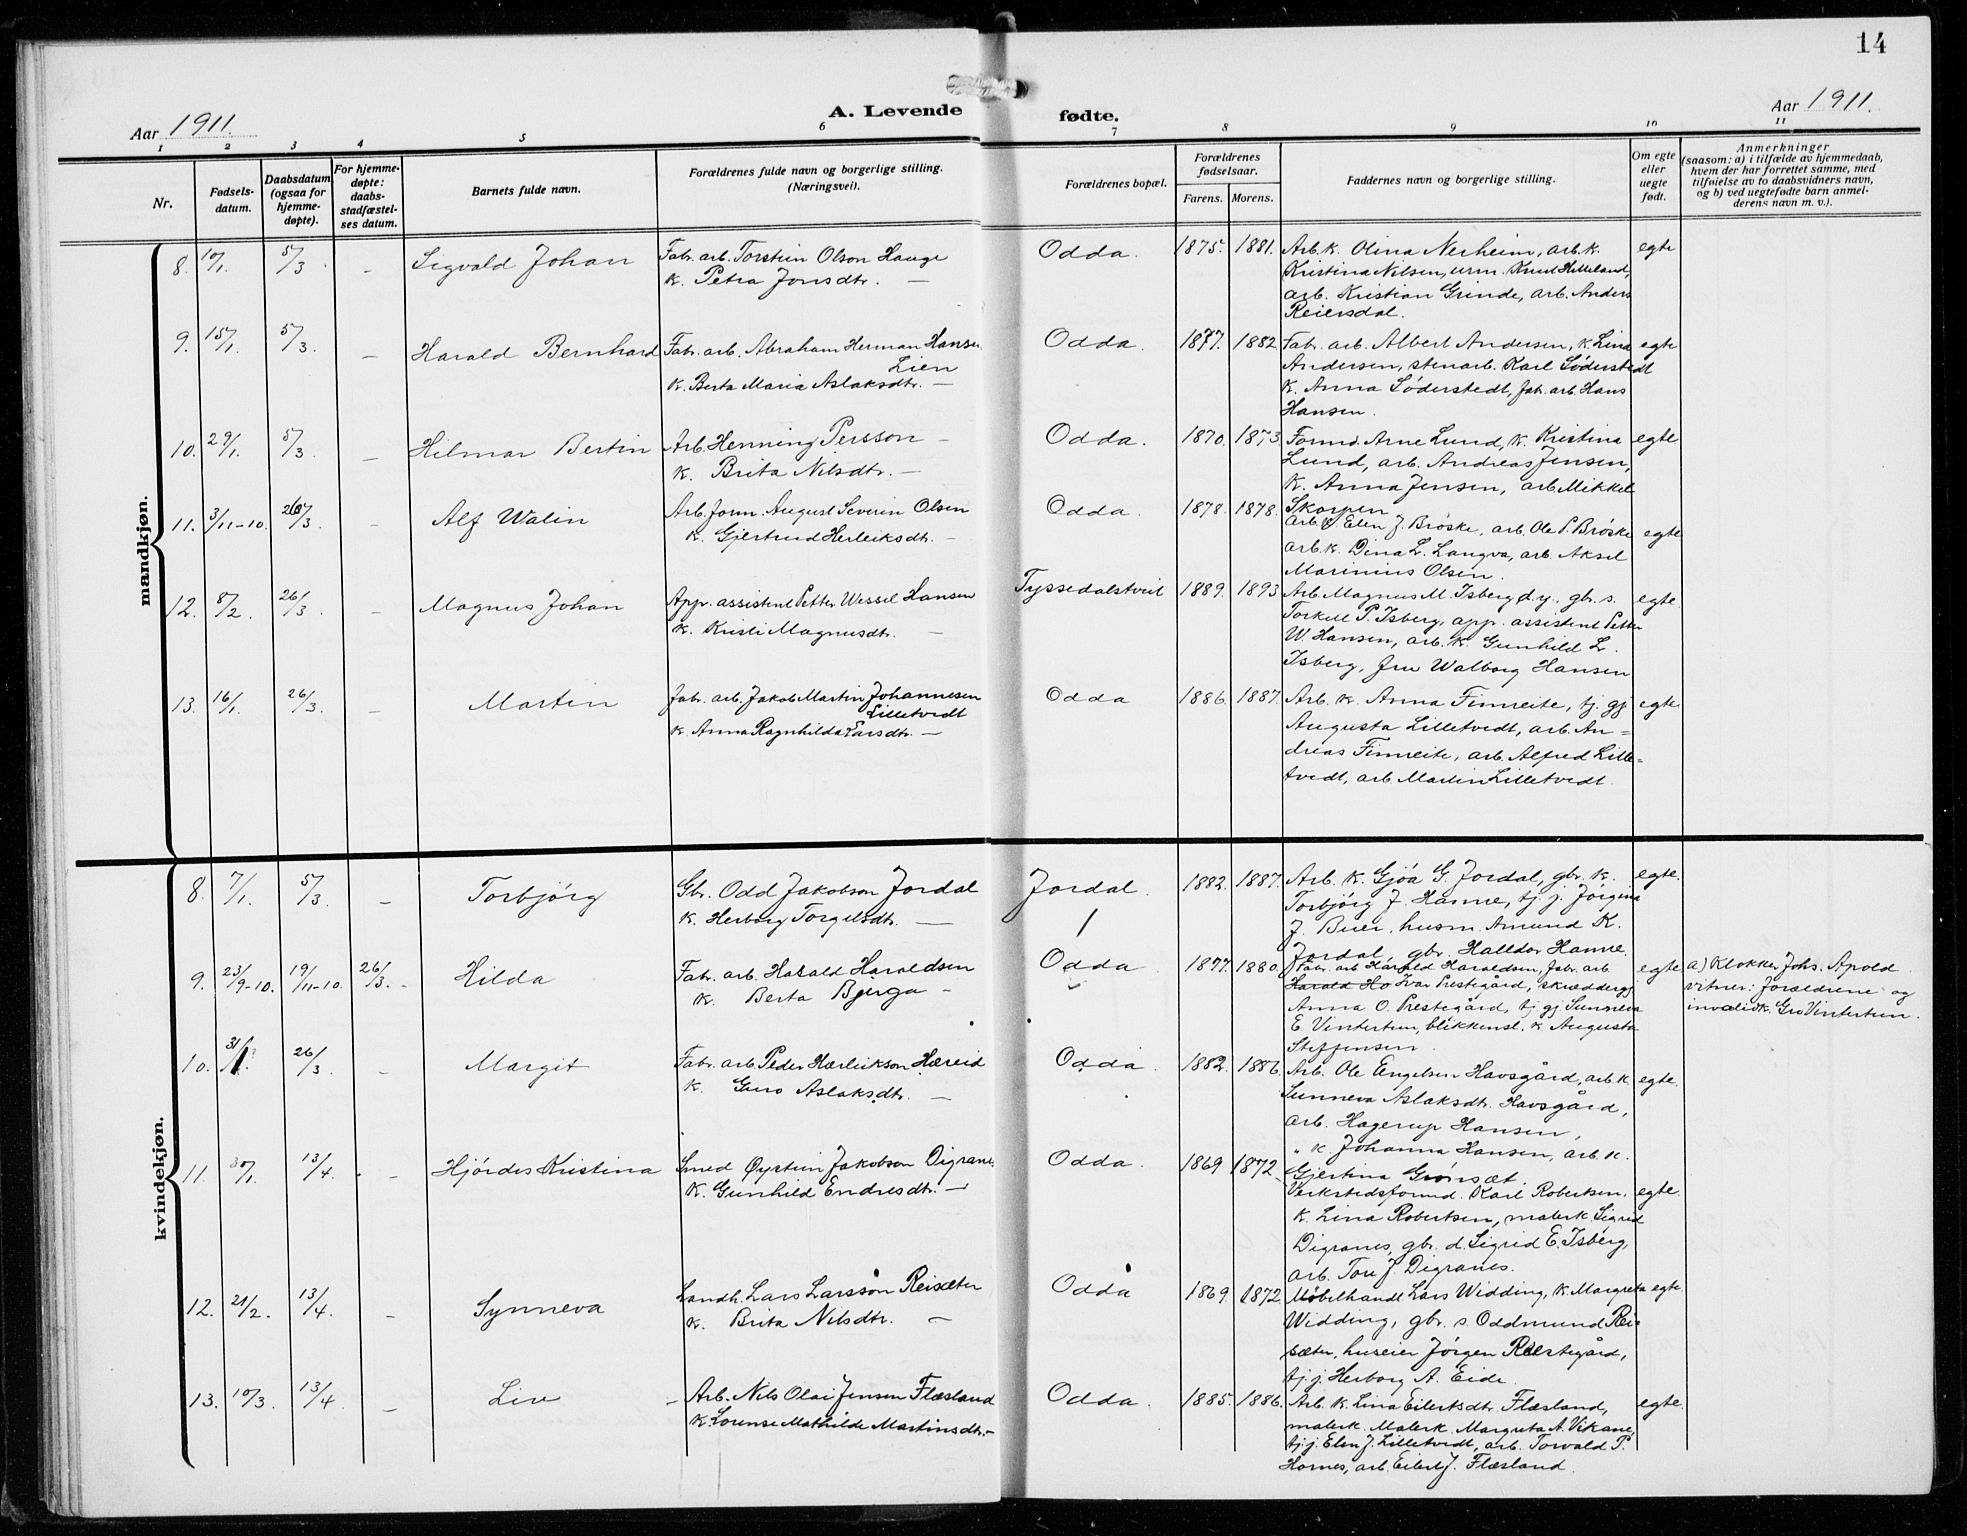 14
Aar 1911.
A. Levende fødte.
Aar 1911.
1 2 3 4 5 6 7 8 9 10 11
Nr.
Fødsels-
datum.
Daabsdatum
(ogsaa for
hjemme-
døpte).
For hjemme-
døpte:
daabs-
stadfæstel-
ses datum.
Barnets fulde navn.
Forældrenes fulde navn og borgerlige stilling.
(Næringsvei).
Forældrenes bopæl.
Forældrenes
fødselsaar.
Farens. Morens.
Faddernes navn og borgerlige stilling.
Om egte
eller
uegte
født.
Anmerkninger
(saasom: a) i tilfælde av hjemmedaab,
hvem der har forrettet samme, med
tilføielse av to daabsvidners navn,
og b) ved uegtefødte barn anmel-
derens navn m. v.).
mandkjøn.
8. 10/1. 5/3. - Sigvald Johan
Fabr. arb. Torstein Olson Hauge
K. Petra Jonsdtr. -
Odda. 1875. 1881.
Arb. K. Olina Nerheim, arb. K.
Kristina Nilsen, urm. Knut Hilleland,
arb. Kristian Grinde, arb. Anders
Reiersdal.
egte
9. 15/1. 5/3. - Harald Bernhard
Fabr. arb. Abraham Herman Hansen
Lien
K. Berta Maria Aslaksdtr. -
Odda. 1877. 1882.
Fabr. arb. Albert Andersen, K. Lina
Andersen, stenarb. Karl Søderstedt
K. Anna Søderstedt, fabr. arb. Hans
Hansen.
egte
10. 29/1. 5/3. - Hilmar Bertin
Arb. Henning Persson -
K. Brita Nilsdtr. -
Odda. 1870. 1873.
Formd. Arne Lund, K. Kristina
Lund, arb. Andreas Jensen,
K. Anna Jensen, arb. Mikkel
Skorpen
egte
11. 3/11-10. 26/3. - Alf Walin
Arb. form. August Severin Olsen
K. Gjertrud Herleiksdtr. -
Odda. 1878. 1878.
Arb. K Elen J. Brøske, arb. Ole P. Brøske
arb. K. Dina L. Langva, arb. Aksel
Marinius Olsen.
egte
12. 8/2. 26/3. - Magnus Johan
App. assistent Petter Wessel Hansen
K. Kristi Magnusdtr. -
Tyssedalstveit 1889. 1893
Arb. Magnus M. Isberg d.y., gbr. s.
Torkell P. Isberg, app. assistent Petter
W. Hansen, arb. K. Gunhild L.
Isberg, fru Walborg Hansen
egte.
13. 16/1. 26/3. - Martin
Fabr. arb. Jakob Martin Johannesen
Lilletvedt
K. Anna Ragnhilda Larsdtr. -
Odda 1886. 1887.
Arb. K. Anna Finneite, tj. gj
Augusta Lilletvedt, arb. An-
dreas Finneite, arb. Alfred Lille-
tvedt, arb. Martin Lilletvedt.
egte
kvindekjøn.
8. 7/1. 5/3. - Torbjörg
Gbr. Odd Jakobson Jordal
K. Herborg Torgilsdtr. -
Jordal. 1882. 1887.
Arb. K. Gjøa G. Jordal, gbr. K.
Torbjörg J. Hanne, tj. j. Jørgina
J. Buer, husm. Amund K.
Jordal, gbr. Halldor Hanne.
egte.
9. 23/9-10. 19/11-10. 26/3. - Hilda
Fabr. arb. Harald Haraldsen
K. Berta Bjerga -
Odda 1877. 1880.
Fabr. arb. Harald Haraldsen, fabr. arb.
Harald Ha Ivar Prestegård, skrædderg
Anna O. Prestegård, tj. gj Sunneva
E. Vintertun, blikkensl. K. Augusta
Steffensen.
egte
a) Klokker Johs. Apold
vitner: Forældrene og
invalidk. Gro Vintertun.
10. 31/1. 26/3. - Margit
Fabr. arb. Peder Hærleikson Hæreid
K. Guro Aslaksdtr. -
Odda 1882. 1886.
Arb. Ole Engelsen Havsgård, arb. K.
Sunneva Aslaksdtr. Havsgård,
arb. Hagerup Hansen,
" K Johanna Hansen, arb. K.
Gjertina Grönsæt.
egte.
11. 30/1. 13/4. - Hjördes Kristina
Smed Øystein Jakobson Digranes
K. Gunhild Endresdtr. -
Odda. 1869 1872.
Verkstedsformd. Karl Robertsen,
K. Lina Robertsen, malerk. Sigrid
Digranes, gbr. d. Sigrid E. Isberg,
arb. Tore J. Digranes.
egte.
12. 21/2. 13/4. - Synneva
Landh. Lars Larsson Reisæter
K. Brita Nilsdtr. -
Odda 1869. 1872.
Møbelhandl Lars Widding, K. Margreta
Widding, gbr. s. Oddmund Rei-
sæter, huseier Jörgen Prestegård,
tj. j. Herborg A. Eide.
egte.
13. 10/3. 13/4. - Liv
- Arb. Nils Olai Jensen Flæsland
K. Lorense Mathilde Martinsdtr. -
Odda. 1885. 1886.
Arb. K. Lina Eilertsdtr. Flæsland,
malerk. Malerk. Margreta A. Vikane,
tj. j. Elen J. Lilletvedt, arb. Torvald P.
Hornes, arb. Eilert J. Flæsland.
egte.